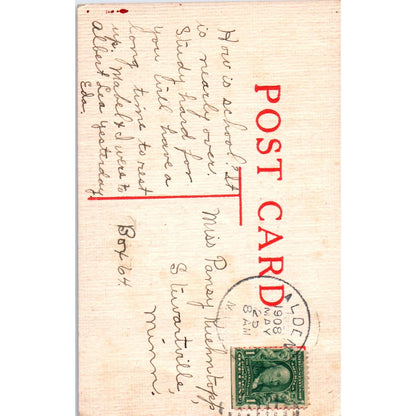 POST CARD
How is school? It
is nearly over.
Study hard for
you will have a
long time to rest
up. Mabel & I were to
Albert Lea yesterday
Eda.
Miss Pansy Kuehntopp
Stewartville,
Minn.
Box 64.
ALDEN
1908
MAY
25
8 AM